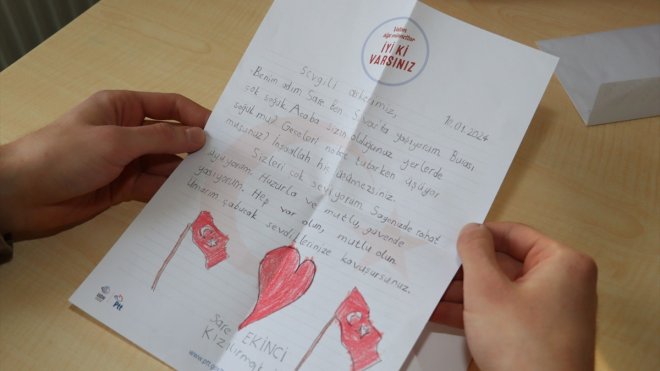 Şehit
ağabeylerimiz
İYİ Kİ
VARSINIZ
Sevgili abicimiz,
10.01.2024
Benim adım Sare. Ben Sivas'ta yaşıyorum. Burası
çok soğuk. Acaba sizin olduğunuz yerlerde
soğuk mu? Geceleri nöbet tutarken üşüyor
musunuz? İnşallah hiç üşümezsiniz.
Sizleri çok seviyorum. Sayenizde rahat
uyuyorum. Huzurla ve mutlu, güvende
yaşıyorum. Hep var olun, mutlu olun.
Umarım çabucak sevdiklerinize kavuşursunuz.
Sare EKİNCİ
Kızılırmak
Ptt
www.ptt.g